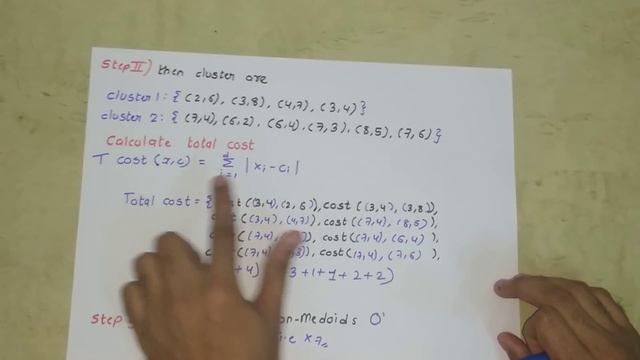 Step II) then cluster are
cluster 1: { (2,6), (3,8), (4,7), (3,4)}
cluster 2: { (7,4), (6,2), (6,4), (7,3), (8,5), (7,6)}
Calculate total cost
T cost (x,c) = d Σ i=1 | xi - ci |
Total cost = { cost((3,4),(2,6)), cost((3,4),(3,8)),
((3,4),(4,7)), cost((7,4),(8,5)),
((7,4), cost((7,4),(6,4)),
((7,4), cost (7,4),(7,6)),
+4) 3+1+1+2+2)
Step on-Medoids O'
i.e x7